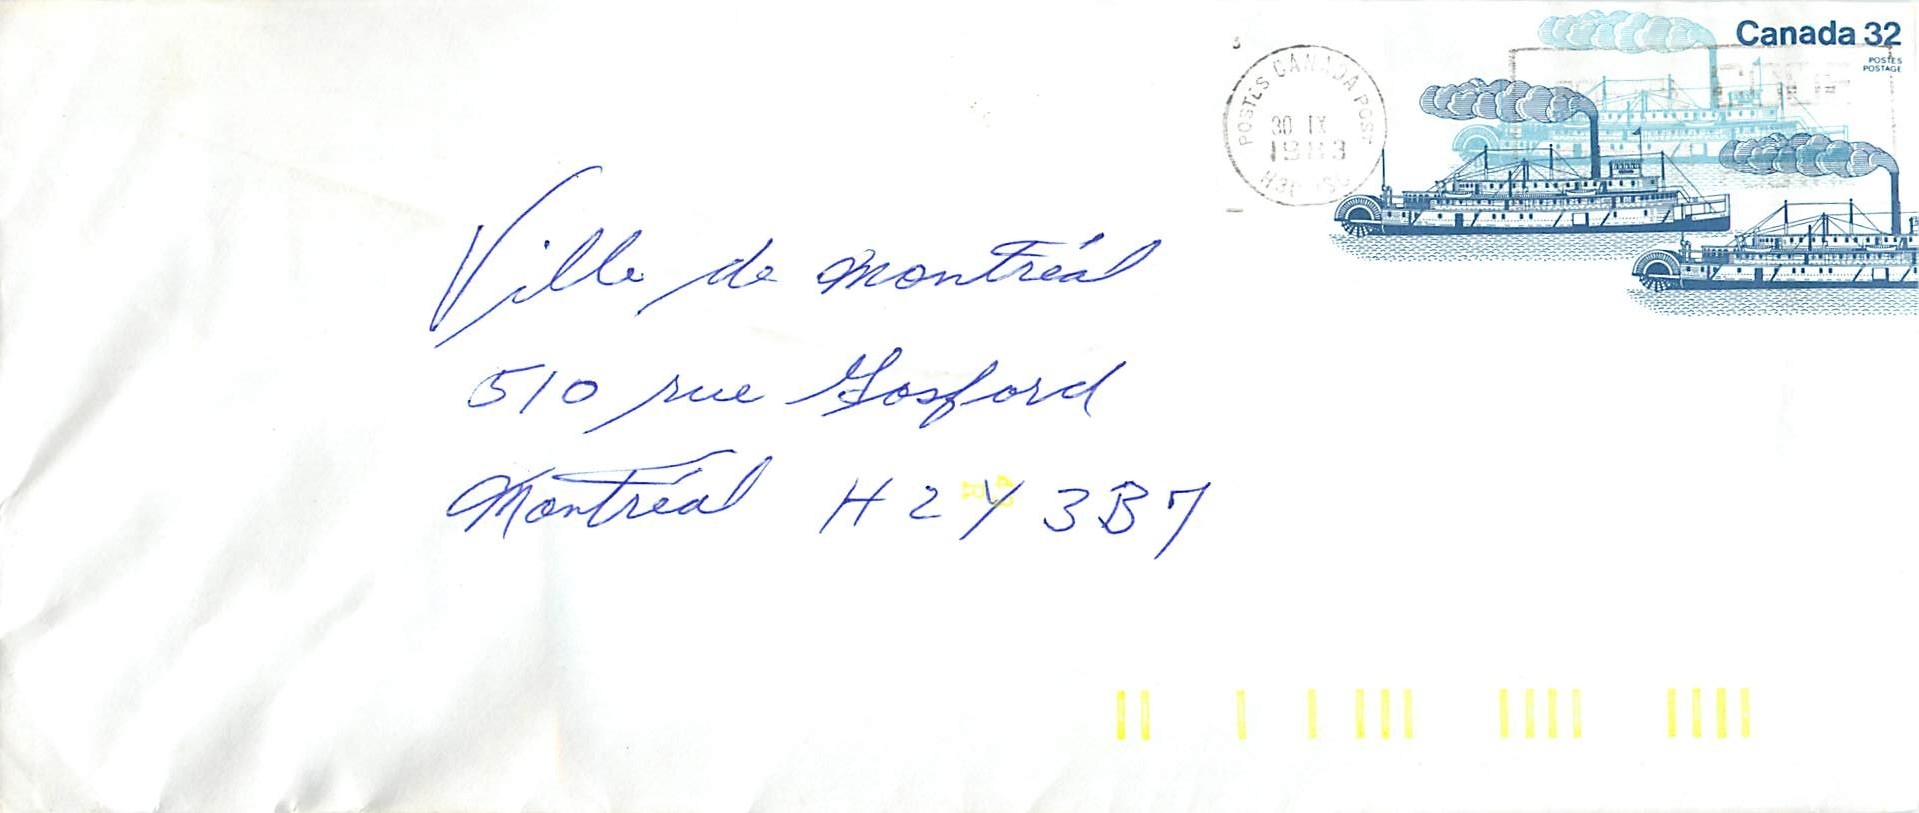 Canada 32
POSTES
POSTAGE
POSTES CANADA POST
30 IX
1983
Ville de Montréal
510 rue Gosford
Montréal H2Y 3B7